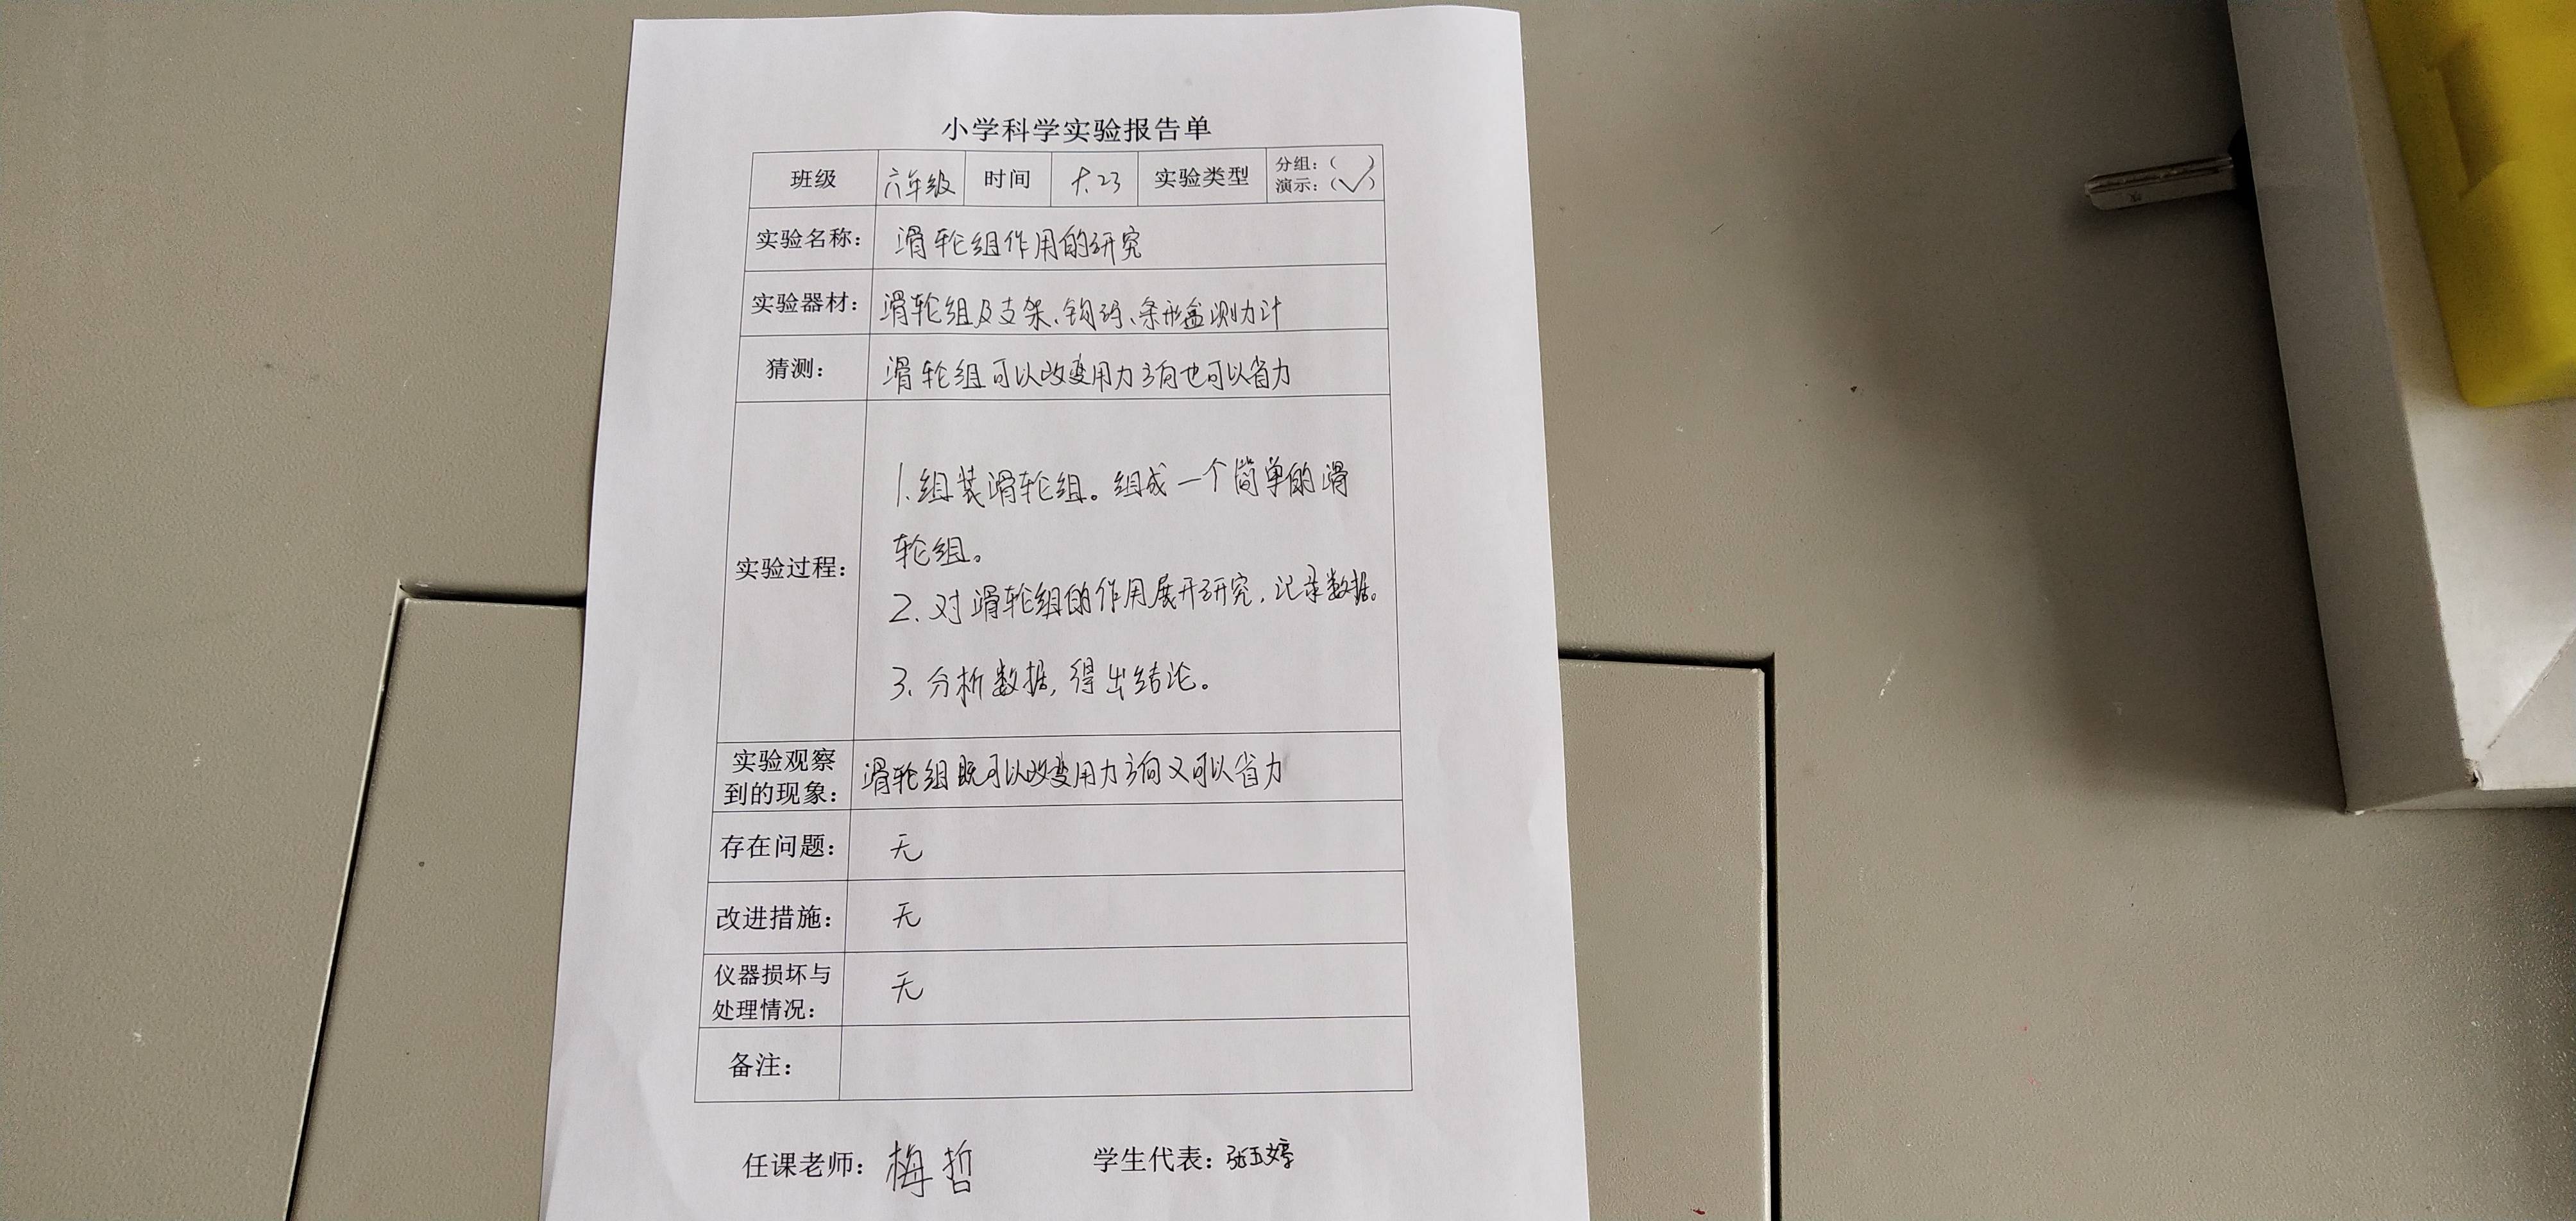 小学科学实验报告单
班级 六年级 时间 实验类型 分组:( )
演示:(✓)
实验名称: 滑轮组作用的研究
实验器材: 滑轮组及支架、钩码、条形盒测力计
猜测: 滑轮组可以改变用力方向也可以省力
实验过程:
1.组装滑轮组。组成一个简单的滑
轮组。
2.对滑轮组的作用展开研究,记录数据。
3.分析数据,得出结论。
实验观察
到的现象: 滑轮组既可以改变用力方向又可以省力
存在问题: 无
改进措施: 无
仪器损坏与
处理情况: 无
备注:
任课老师: 梅哲 学生代表: